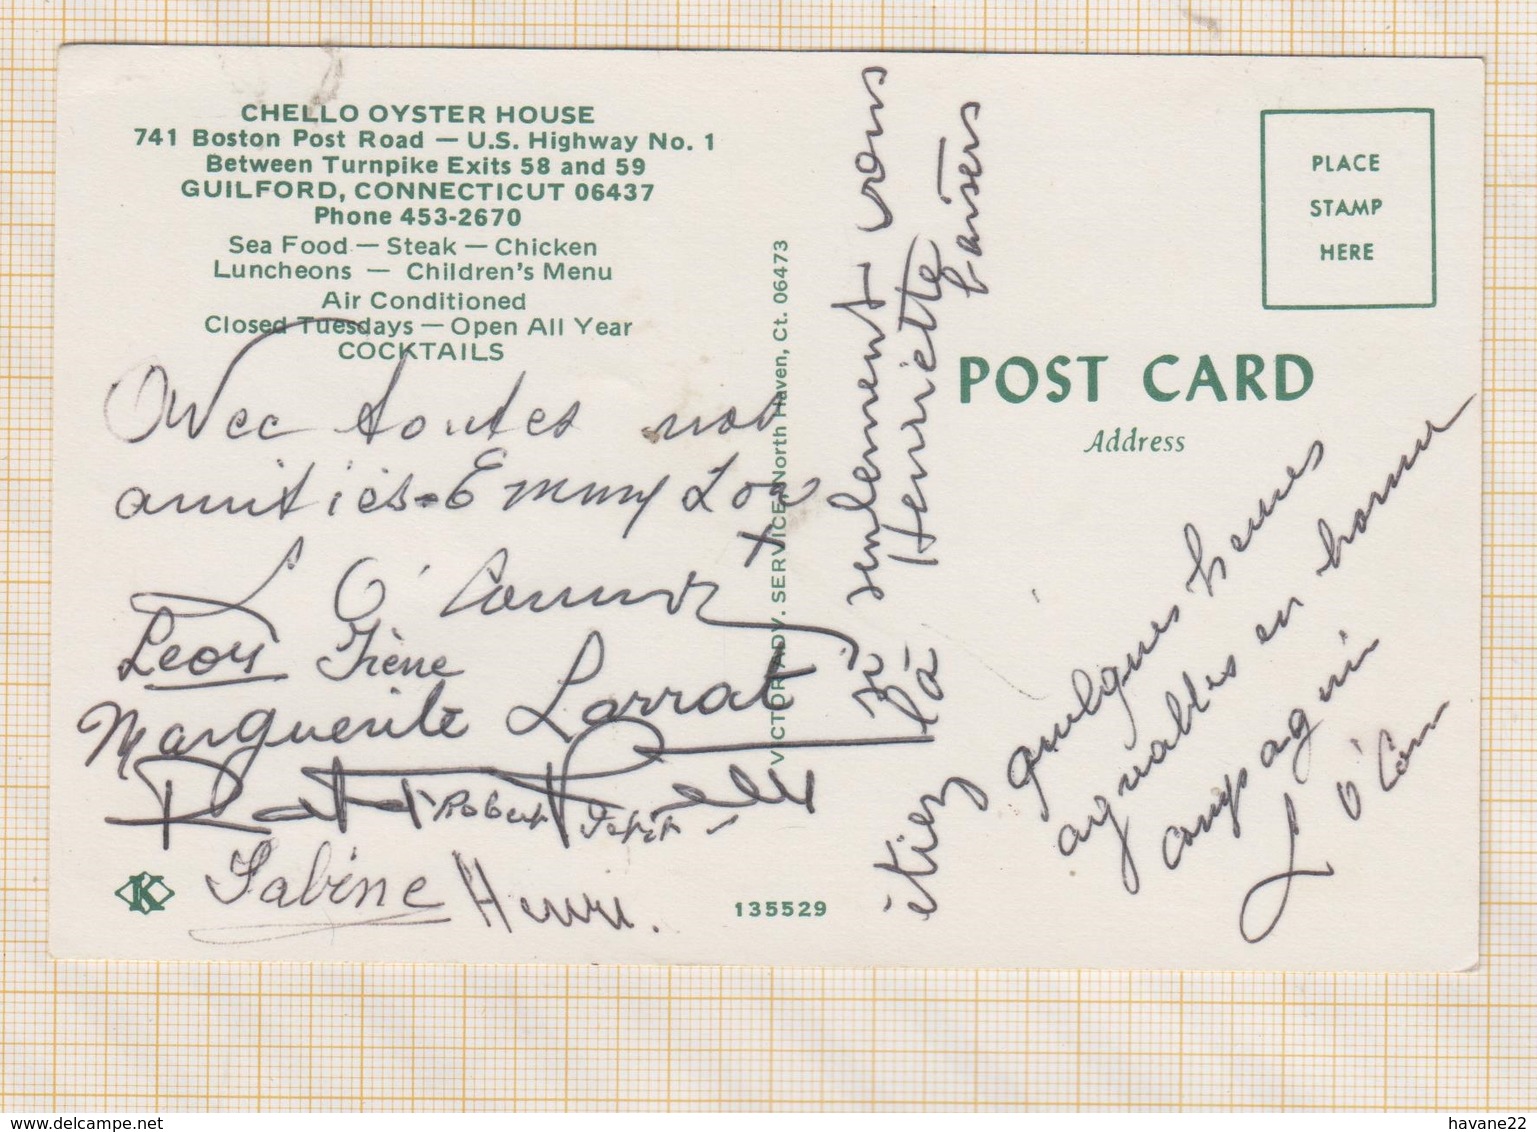 CHELLO OYSTER HOUSE
741 Boston Post Road — U.S. Highway No. 1
Between Turnpike Exits 58 and 59
GUILFORD, CONNECTICUT 06437
Phone 453-2670
Sea Food — Steak — Chicken
Luncheons — Children's Menu
Air Conditioned
Closed Tuesdays — Open All Year
COCKTAILS
Avec toutes nos
amitiés. Emmy Lou
L O'Connor
Leon Irène
Marguerite Larrat
Robert
Sabine Henri.
135529
K
VICTOR ADV. SERVICE, North Haven, Ct. 06473
si seulement vous
étiez là Henriette
baisers
POST CARD
Address
PLACE
STAMP
HERE
quelques heures
agréables en bonne
compagnie
L O'Con
havane22